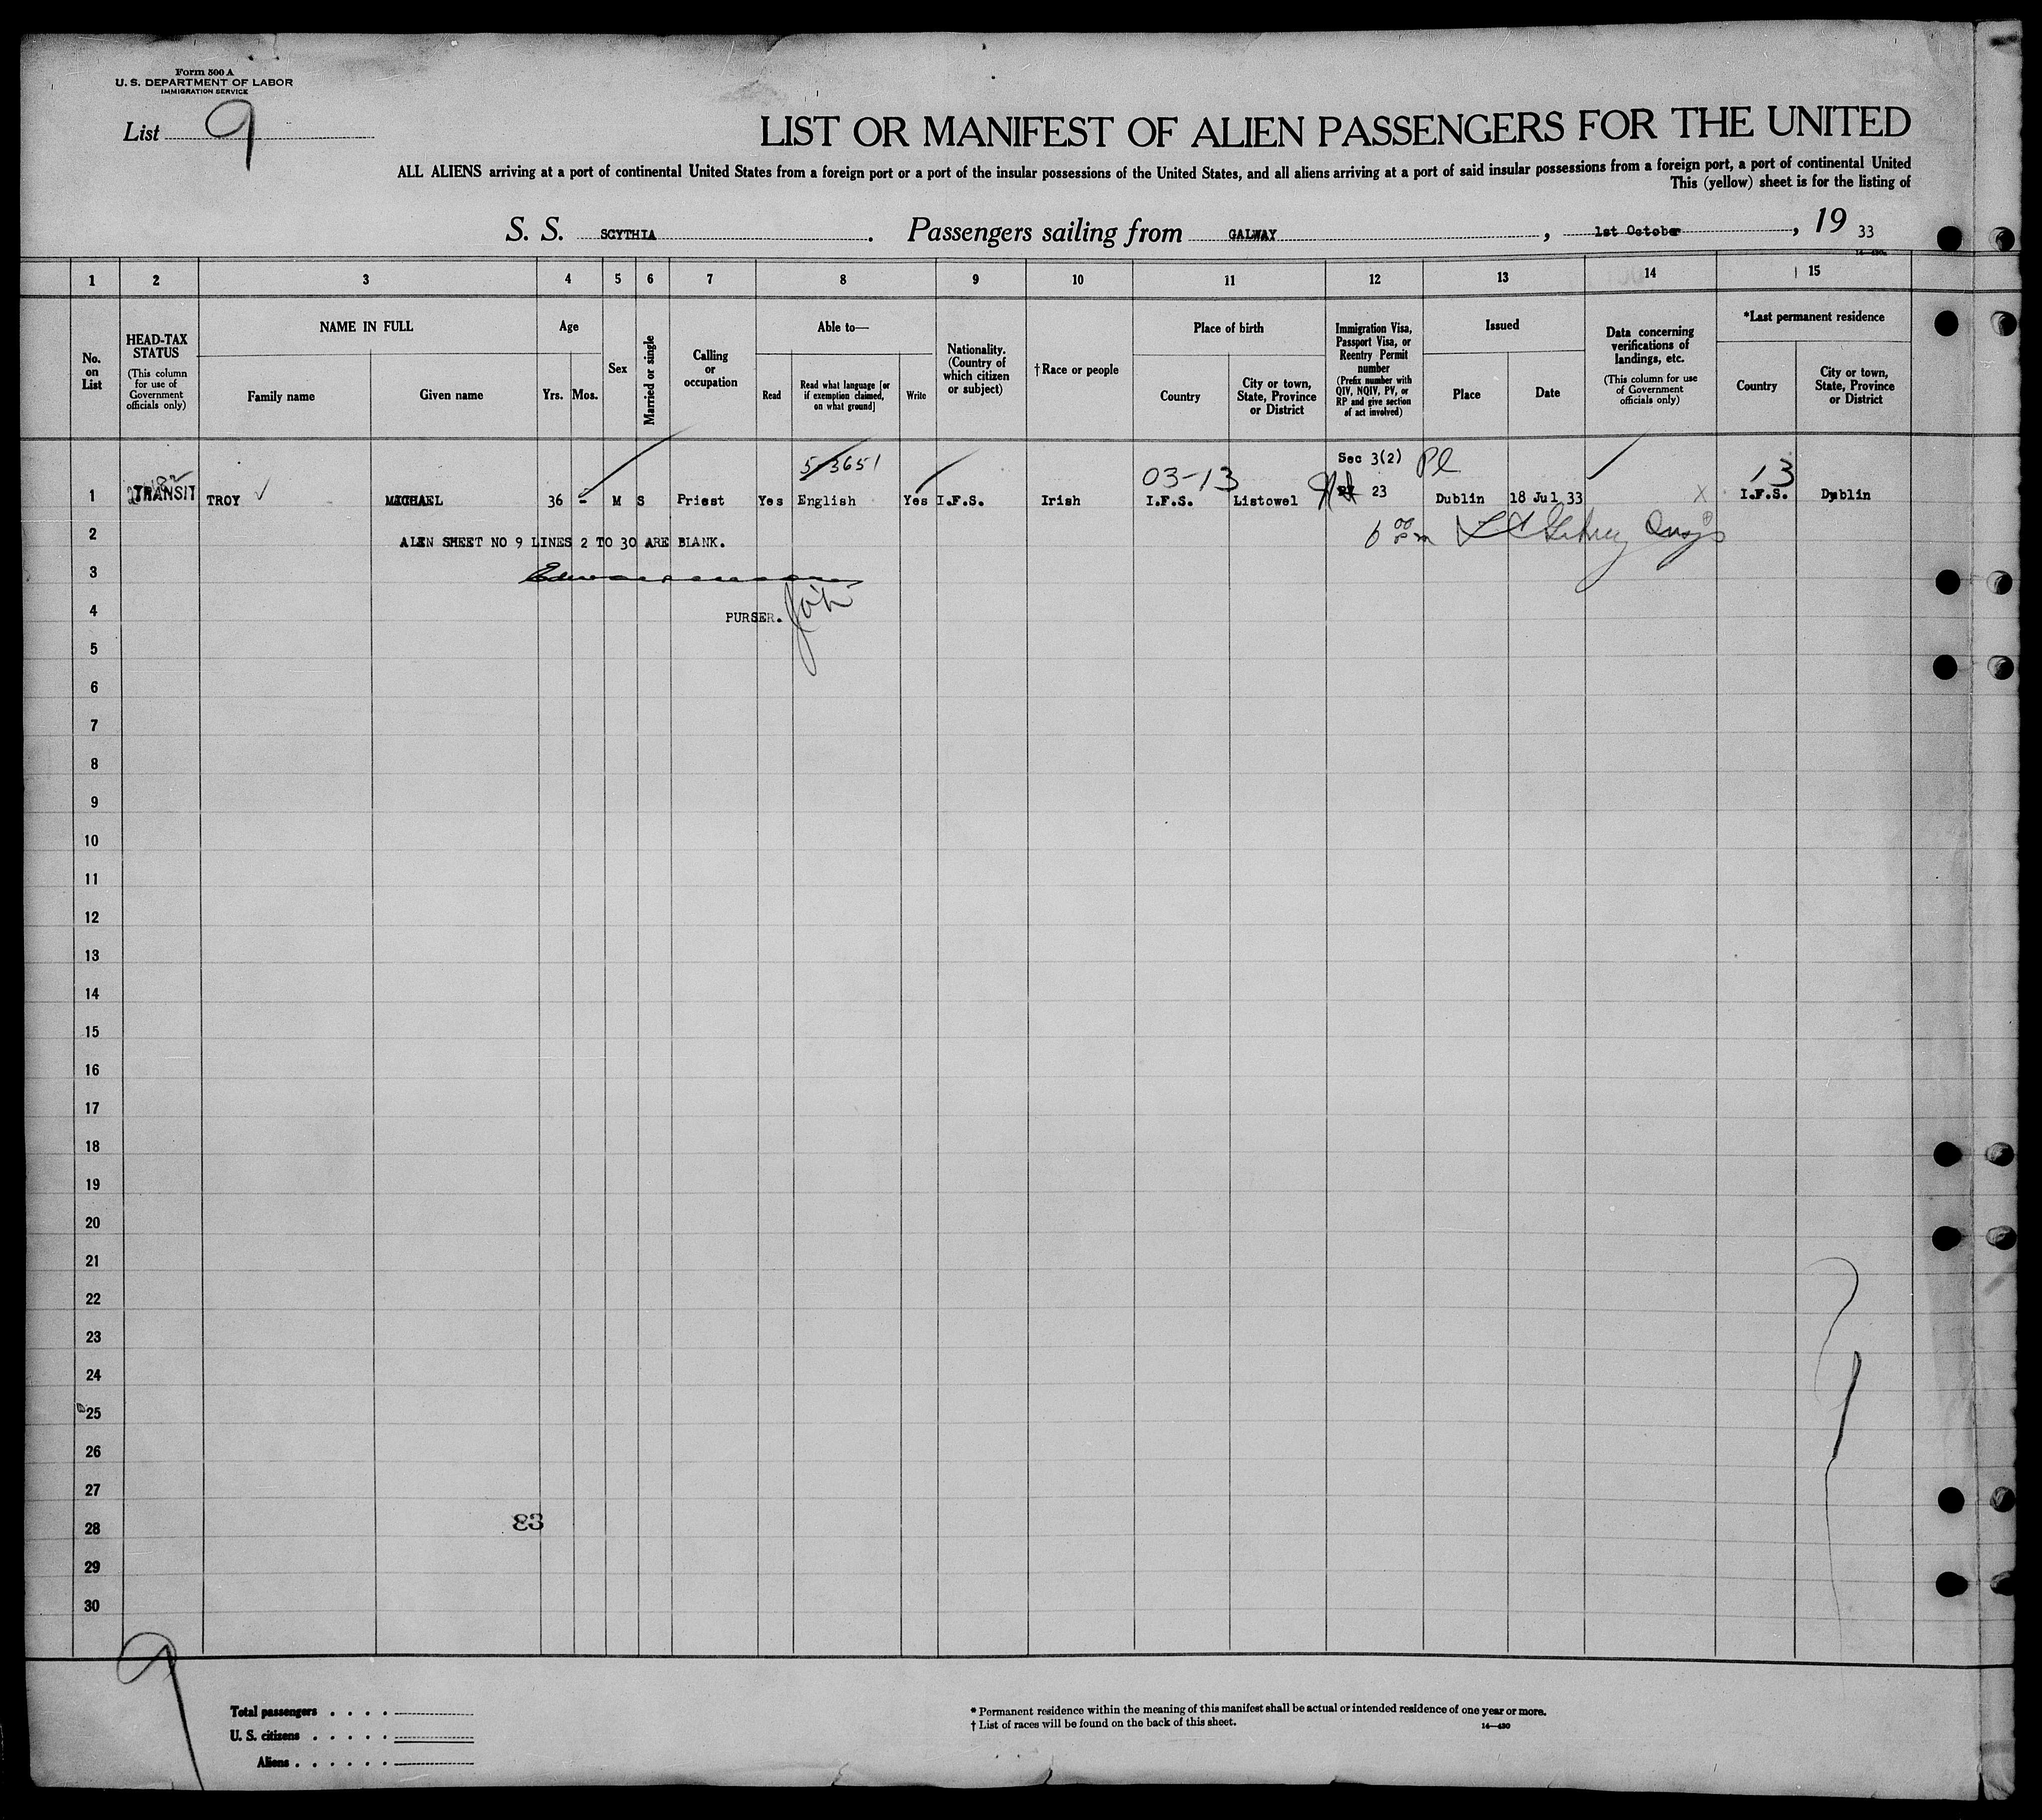 Form 500 A
U. S. DEPARTMENT OF LABOR
IMMIGRATION SERVICE
List 9
LIST OR MANIFEST OF ALIEN PASSENGERS FOR THE UNITED
ALL ALIENS arriving at a port of continental United States from a foreign port or a port of the insular possessions of the United States, and all aliens arriving at a port of said insular possessions from a foreign port, a port of continental United
This (yellow) sheet is for the listing of
S. S. SCYTHIA. Passengers sailing from GALWAY, 1st October, 19 33
1 2 3 4 5 6 7 8 9 10 11 12 13 14 15
No. on List
HEAD-TAX STATUS
(This column for use of Government officials only)
NAME IN FULL
Family name
Given name
Age
Yrs. Mos.
Sex
Married or single
Calling or occupation
Able to—
Read
Read what language [or if exemption claimed, on what ground]
Write
Nationality. (Country of which citizen or subject)
†Race or people
Place of birth
Country
City or town, State, Province or District
Immigration Visa, Passport Visa, or Reentry Permit number
(Prefix number with QIV, NQIV, PV, or RP and give section of act involved)
Issued
Place
Date
Data concerning verifications of landings, etc.
(This column for use of Government officials only)
*Last permanent residence
Country
City or town, State, Province or District
5/3651 03-13 Sec 3(2) Pl 13
1 TRANSIT TROY MICHAEL 36 - M S Priest Yes English Yes I.F.S. Irish I.F.S. Listowel 23 Dublin 18 Jul 33 X I.F.S. Dublin
2 ALEN SHEET NO 9 LINES 2 TO 30 ARE BLANK. 6 00 pm
3
4 PURSER.
5
6
7
8
9
10
11
12
13
14
15
16
17
18
19
20
21
22
23
24
25
26
27
28 83
29
30
9
Total passengers . . . .
U. S. citizens . . . . .
Aliens . . . . . .
* Permanent residence within the meaning of this manifest shall be actual or intended residence of one year or more.
† List of races will be found on the back of this sheet. 14—430